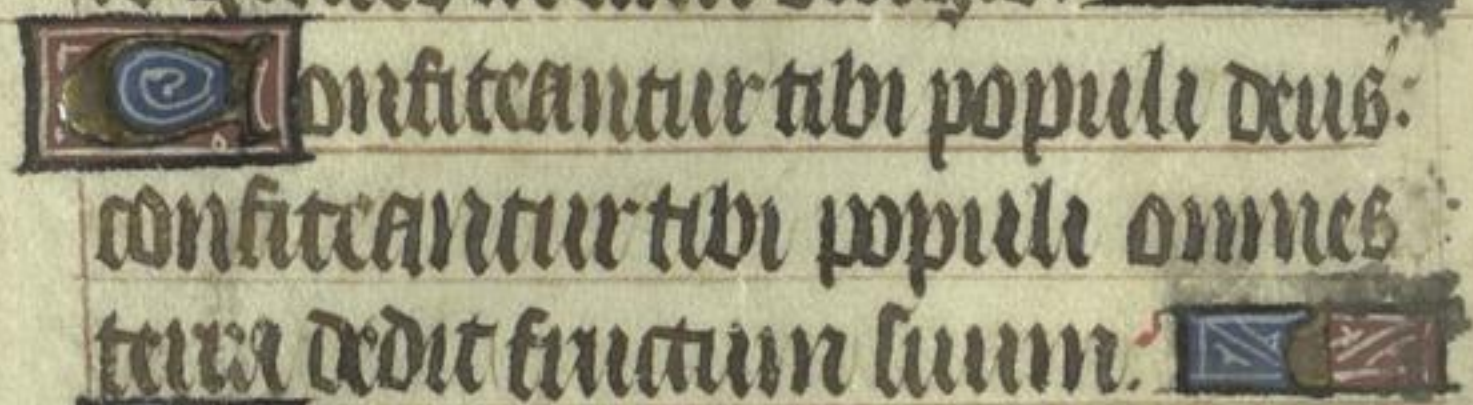 Confiteantur tibi populi deus:
confiteantur tibi populi omnes
terra dedit fructum suum.